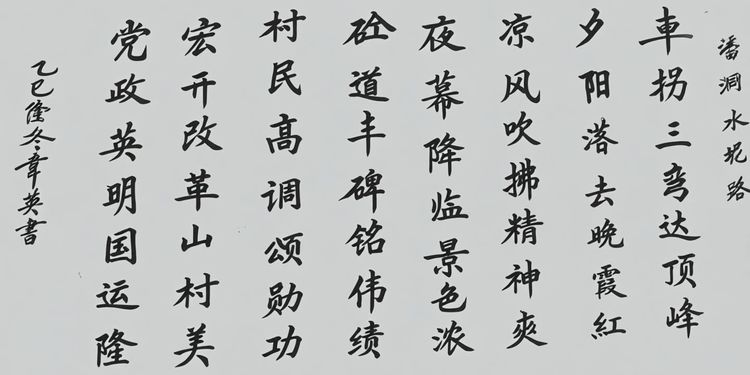 潘洞水坭路
車拐三弯达顶峰
夕阳落去晚霞紅
凉风吹拂精神爽
夜幕降临景色浓
砼道丰碑铭伟绩
村民高调颂勋功
宏开改革山村美
党政英明国运隆
乙巳隆冬韋英書